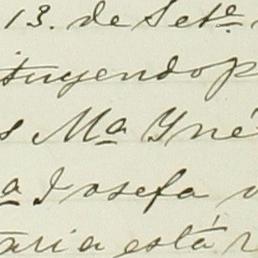 13. de Set.e
ituyendo p
s Ma Yné
a Josefa v
aria está r